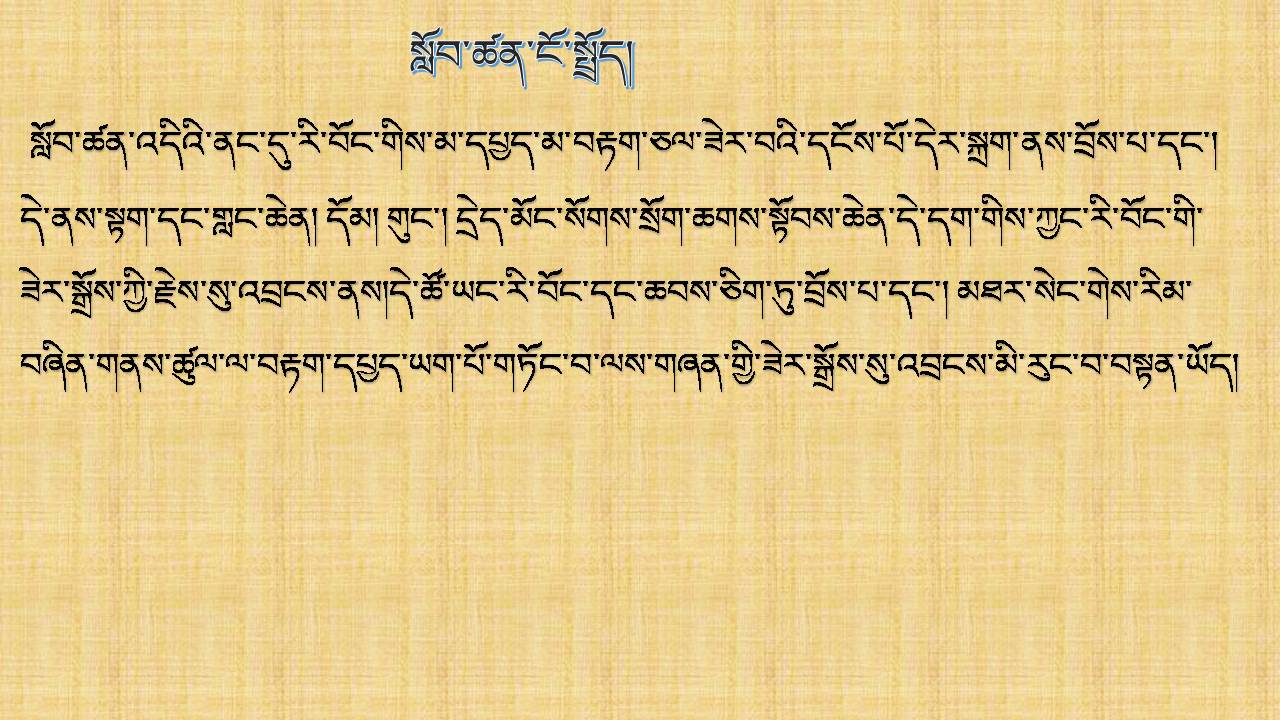 སློབ་ཚན་ངོ་སྤྲོད།
སློབ་ཚན་འདིའི་ནང་དུ་རི་བོང་གིས་མ་དཔྱད་མ་བརྟག་ཅལ་ཟེར་བའི་དངོས་པོ་དེར་སྐྲག་ནས་བྲོས་པ་དང་།
དེ་ནས་སྟག་དང་གླང་ཆེན། དོམ། གུང་། དྲེད་མོང་སོགས་སྲོག་ཆགས་སྟོབས་ཆེན་དེ་དག་གིས་ཀྱང་རི་བོང་གི་
ཟེར་སྒྲོས་ཀྱི་རྗེས་སུ་འབྲངས་ནས།དེ་ཚོ་ཡང་རི་བོང་དང་ཆབས་ཅིག་ཏུ་བྲོས་པ་དང་། མཐར་སེང་གེས་རིམ་
བཞིན་གནས་ཚུལ་ལ་བརྟག་དཔྱད་ཡག་པོ་གཏོང་བ་ལས་གཞན་གྱི་ཟེར་སྒྲོས་སུ་འབྲངས་མི་རུང་བ་བསྟན་ཡོད།